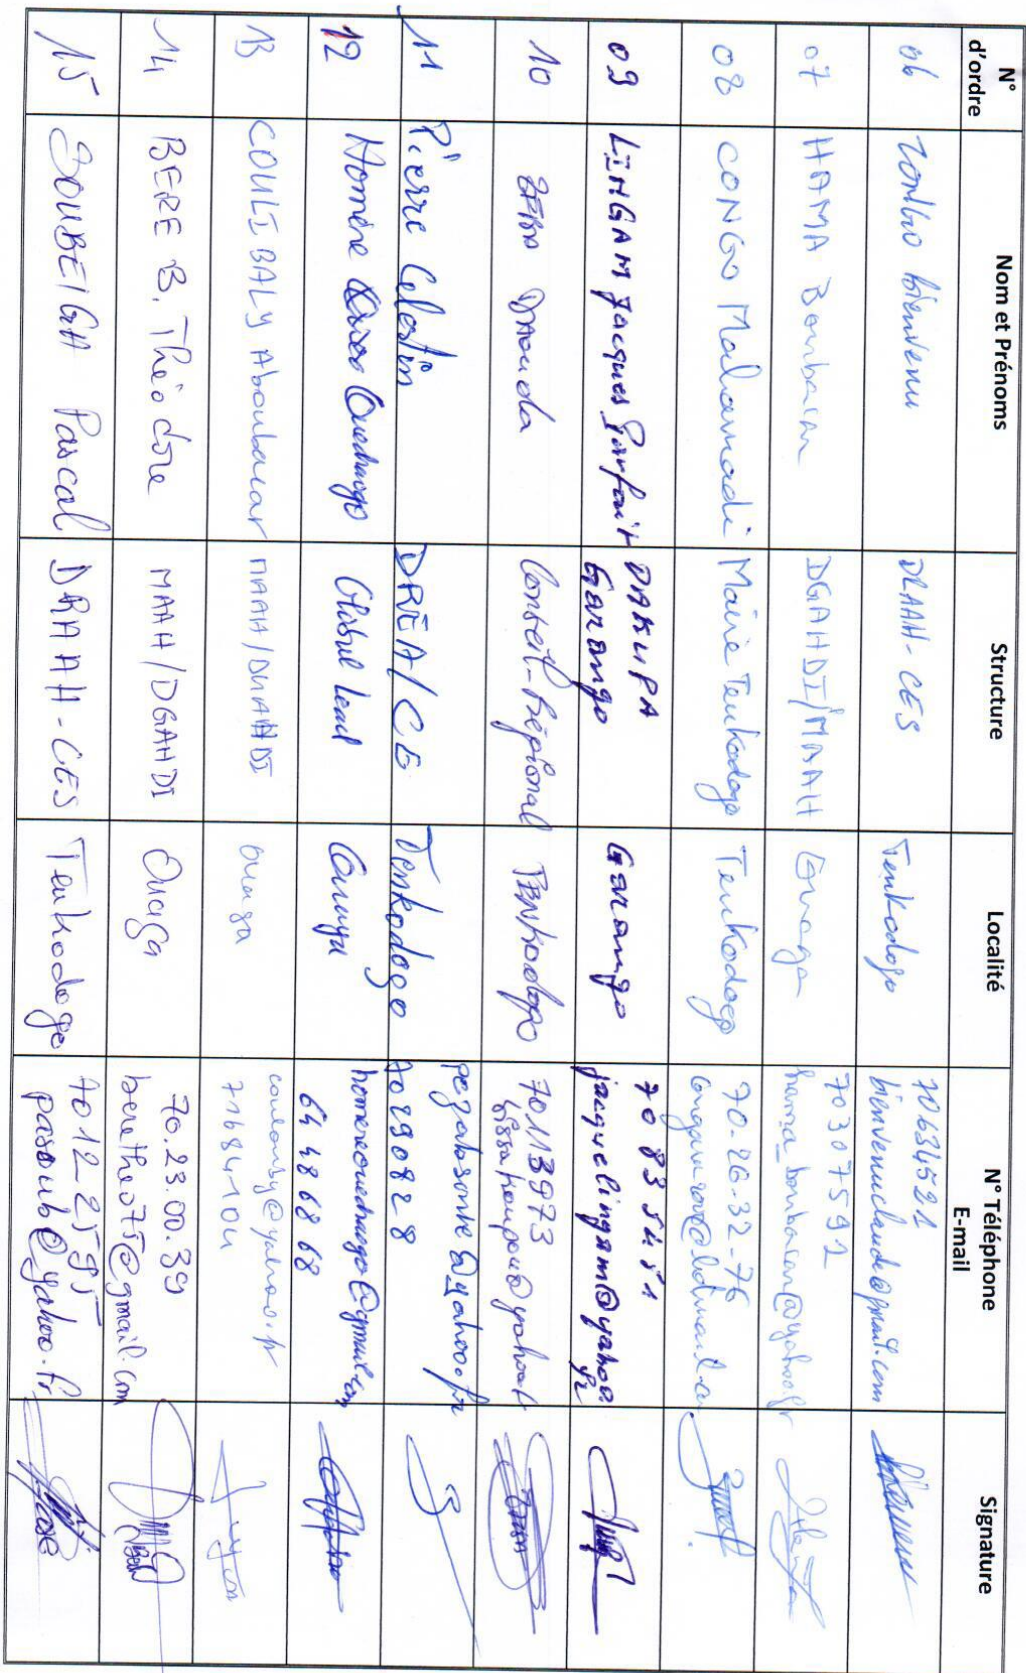 N° d'ordre Nom et Prénoms Structure Localité N° Téléphone E-mail Signature
06 Zombo bienvenu DRAAH-CES Tenkodogo 70634521 bienvenuclaude@gmail.com
07 HAMA Boubacar DGAHDI/MAAH Ouaga 70307592 hama_boubacar@yahoo.fr
08 CONGO Mahamadi Mairie Tenkodogo Tenkodogo 70-26-32-76
09 LINGAM Jacques Parfait DAKUPA Garango Garango 70 83 54 51 jacquelingam@yahoo.fr
10 Daouda Conseil-Régional TENKodogo 70113973
11 Pierre Celestin DREA/CE Tenkodogo 70290828
12 Homère Ouedraogo Global Lead Ouaga homereouedraogo@gmail.com 64 48 68 68
13 COULIBALY Aboubacar Ouaga
14 BERE B. Théodore MAAH/DGAHDI Ouaga 70.23.00.39 beretheo75@gmail.com
15 SOUBEIGA Pascal DRAAH-CES Tenkodogo 70122595 pasoub@yahoo.fr